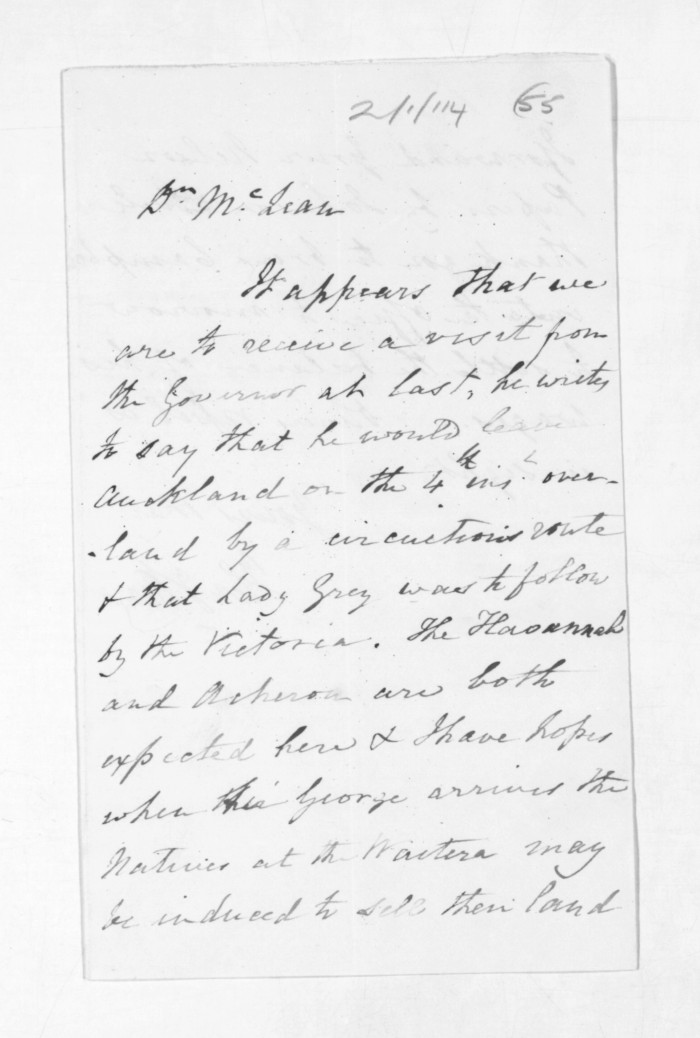 2/1/114 55
Dr McLean
It appears that we
are to receive a visit from
the Governor at last, he writes
to say that he would leave
Auckland on the 4th inst over-
-land by a circuitous route
& that Lady Grey was to follow
by the Victoria. The Havannah
and Acheron are both
expected here & I have hopes
when Sir George arrives the
Natives at the Waitera may
be induced to sell their land